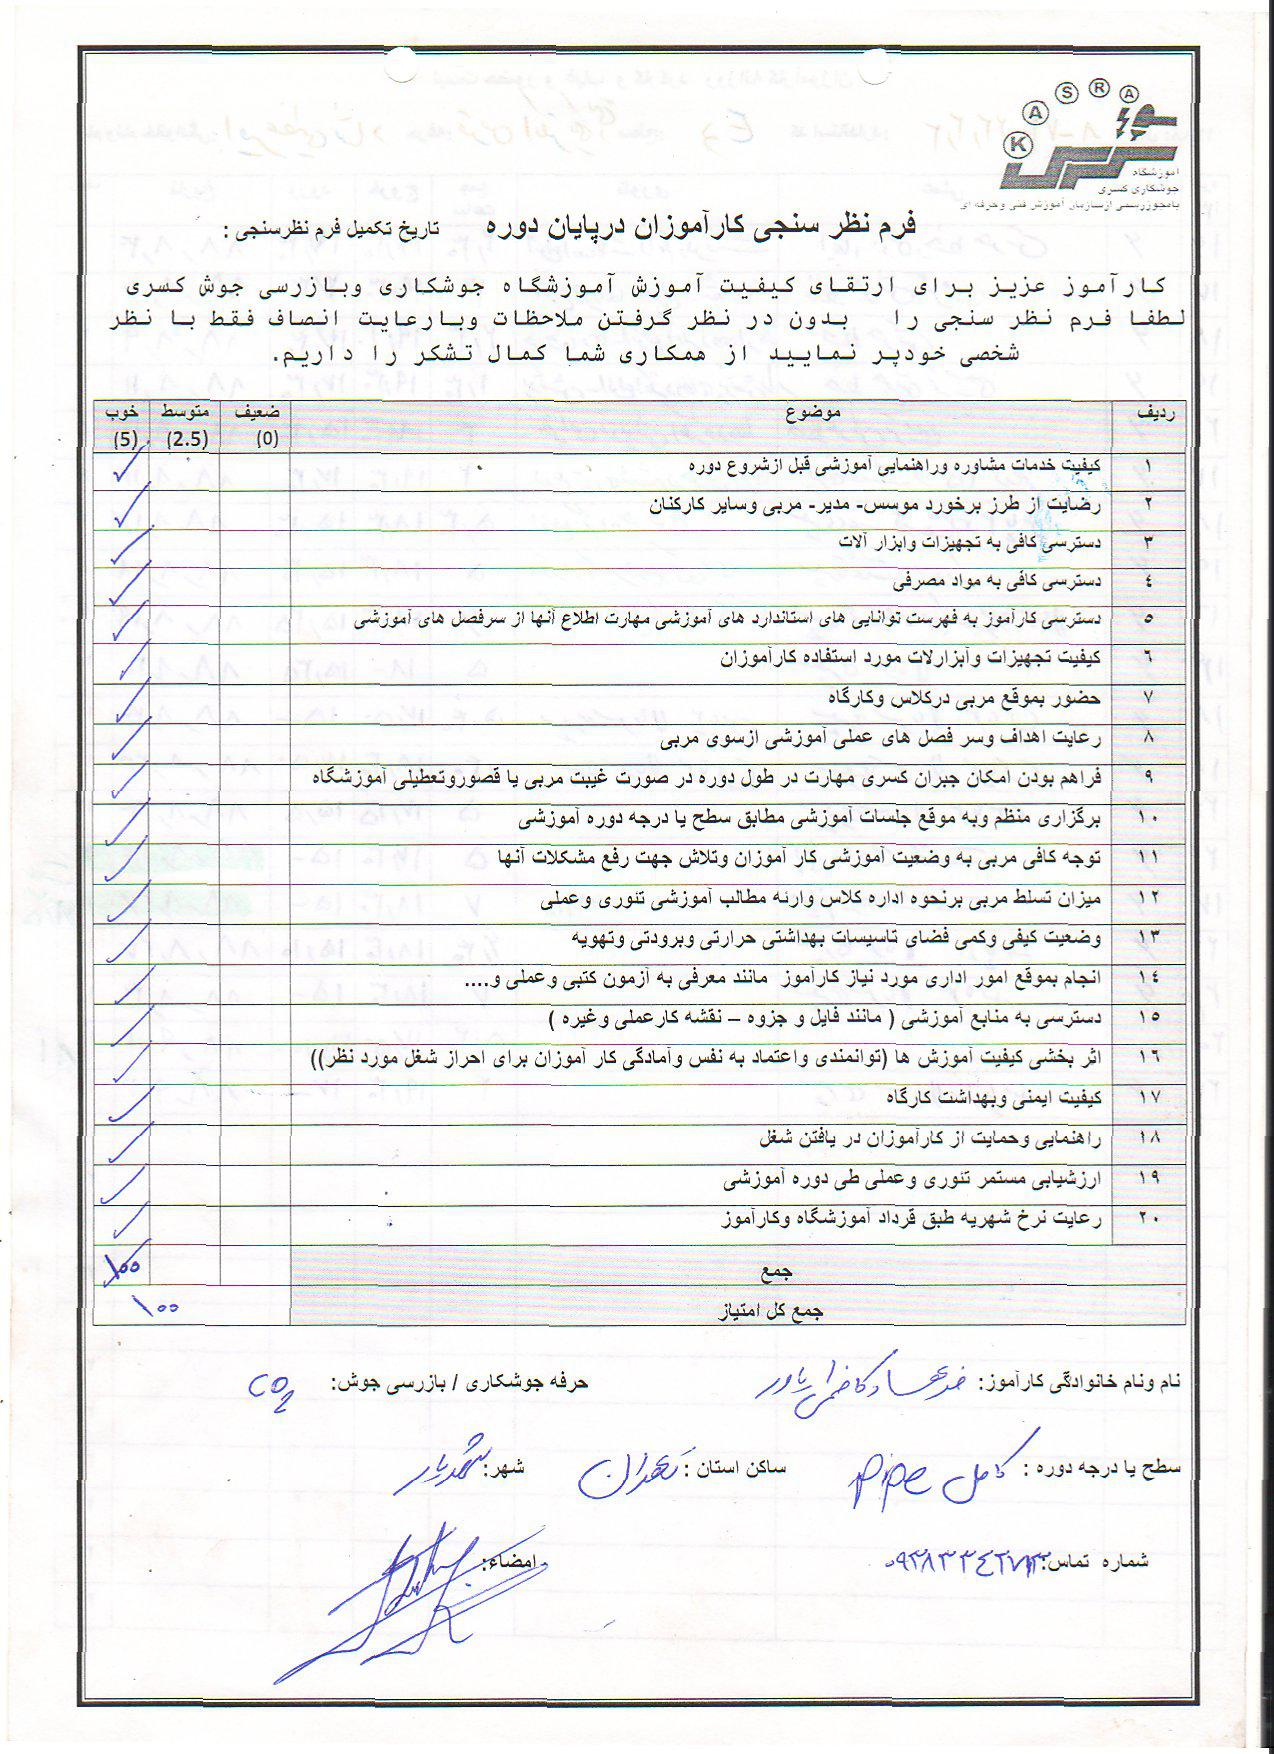 KASRA
آموزشگاه
جوشکاری کسری
بامجوزرسمی ازسازمان آموزش فنی وحرفه ای
فرم نظر سنجی کارآموزان درپایان دوره تاریخ تکمیل فرم نظرسنجی :
کارآموز عزیز برای ارتقای کیفیت آموزش آموزشگاه جوشکاری وبازرسی جوش کسری
لطفا فرم نظر سنجی را بدون در نظر گرفتن ملاحظات وبارعایت انصاف فقط با نظر
شخصی خودپر نمایید از همکاری شما کمال تشکر را داریم.
ردیف موضوع ضعیف (0) متوسط (2.5) خوب (5)
۱ کیفیت خدمات مشاوره وراهنمایی آموزشی قبل ازشروع دوره ✓
۲ رضایت از طرز برخورد موسس- مدیر- مربی وسایر کارکنان ✓
۳ دسترسی کافی به تجهیزات وابزار آلات ✓
۴ دسترسی کافی به مواد مصرفی ✓
۵ دسترسی کارآموز به فهرست توانایی های استاندارد های آموزشی مهارت اطلاع آنها از سرفصل های آموزشی ✓
۶ کیفیت تجهیزات وآبزارلات مورد استفاده کارآموزان ✓
۷ حضور بموقع مربی درکلاس وکارگاه ✓
۸ رعایت اهداف وسر فصل های عملی آموزشی ازسوی مربی ✓
۹ فراهم بودن امکان جبران کسری مهارت در طول دوره در صورت غیبت مربی یا قصوروتعطیلی آموزشگاه ✓
۱۰ برگزاری منظم وبه موقع جلسات آموزشی مطابق سطح یا درجه دوره آموزشی ✓
۱۱ توجه کافی مربی به وضعیت آموزشی کار آموزان وتلاش جهت رفع مشکلات آنها ✓
۱۲ میزان تسلط مربی برنحوه اداره کلاس وارئه مطالب آموزشی تئوری وعملی ✓
۱۳ وضعیت کیفی وکمی فضای تاسیسات بهداشتی حرارتی وبرودتی وتهویه ✓
۱۴ انجام بموقع امور اداری مورد نیاز کارآموز مانند معرفی به آزمون کتبی وعملی و.... ✓
۱۵ دسترسی به منابع آموزشی ( مانند فایل و جزوه – نقشه کارعملی وغیره ) ✓
۱۶ اثر بخشی کیفیت آموزش ها (توانمندی واعتماد به نفس وآمادگی کار آموزان برای احراز شغل مورد نظر)) ✓
۱۷ کیفیت ایمنی وبهداشت کارگاه ✓
۱۸ راهنمایی وحمایت از کارآموزان در یافتن شغل ✓
۱۹ ارزشیابی مستمر تئوری وعملی طی دوره آموزشی ✓
۲۰ رعایت نرخ شهریه طبق قرداد آموزشگاه وکارآموز ✓
جمع ۱۰۰
جمع کل امتیاز ۱۰۰
نام ونام خانوادگی کارآموز: حرفه جوشکاری / بازرسی جوش: CO2
سطح یا درجه دوره : کامل pipe ساکن استان : تهران شهر: شهریار
شماره تماس: امضاء: